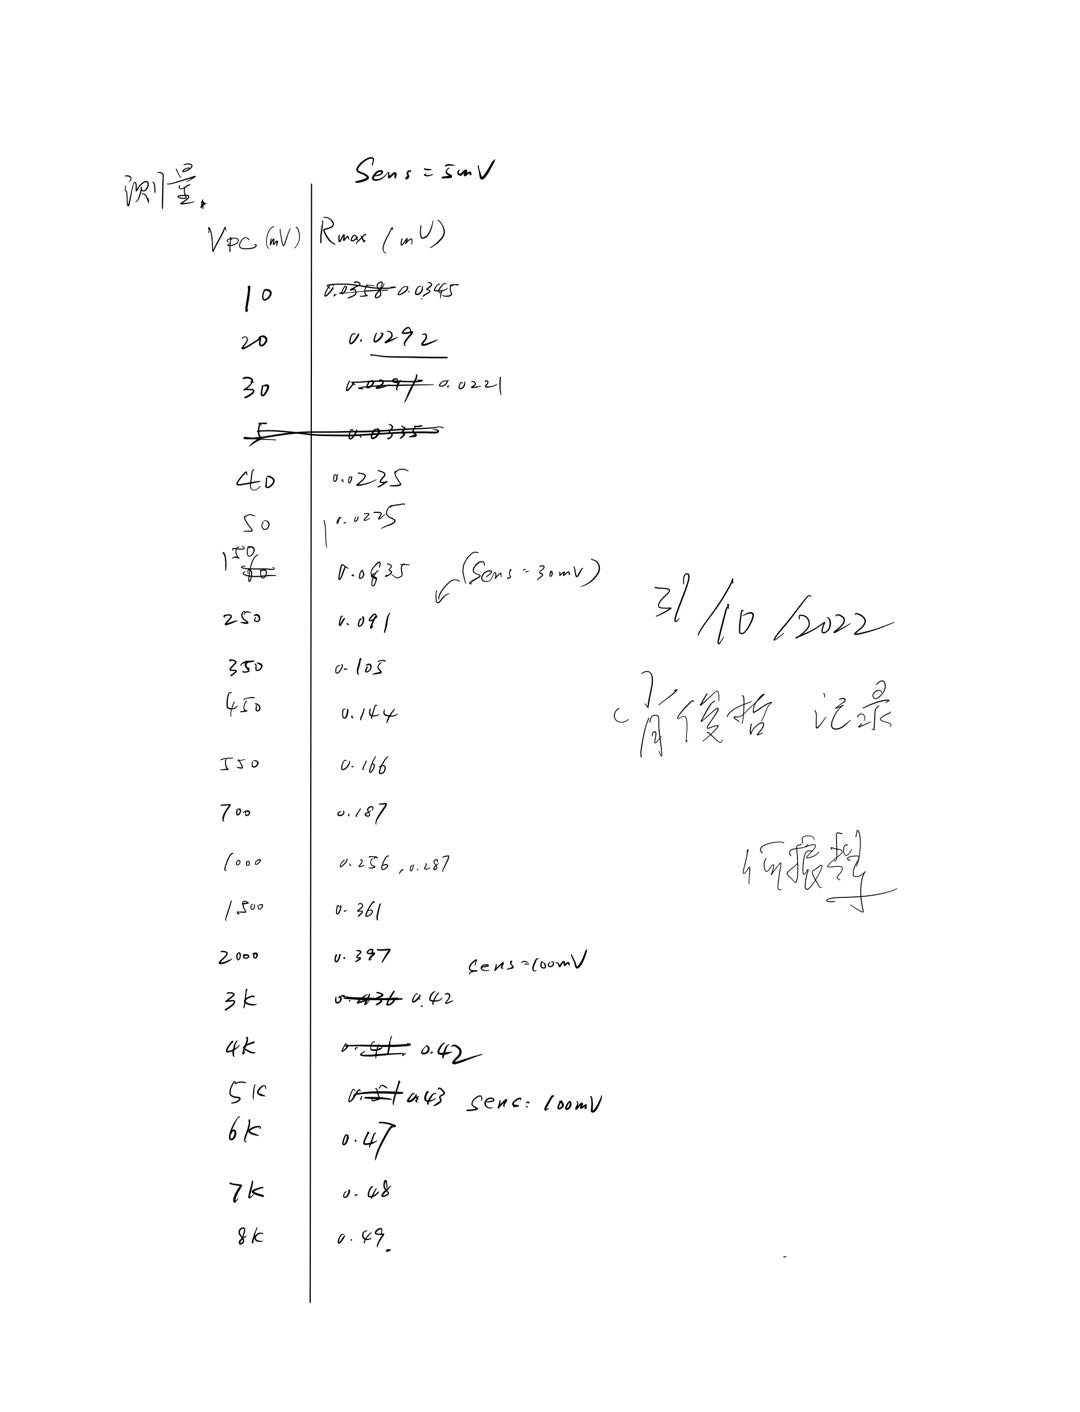 测量.
Sens = 5mV
VPC (mV) Rmax (mV)
10 0.0358 0.0345
20 0.0292
30 0.0297 0.0221
5 0.0335
40 0.0235
50 0.0225
150 0.0635
(Sens = 30mV)
250 0.091
350 0.105
450 0.144
550 0.166
700 0.187
1000 0.256, 0.287
1500 0.361
2000 0.397
sens=100mV
3K 0.436 0.42
4K 0.41 0.42
5K 0.51 0.43 sens: 100mV
6K 0.47
7K 0.48
8K 0.49.
31/10/2022
肖俊哲 记录